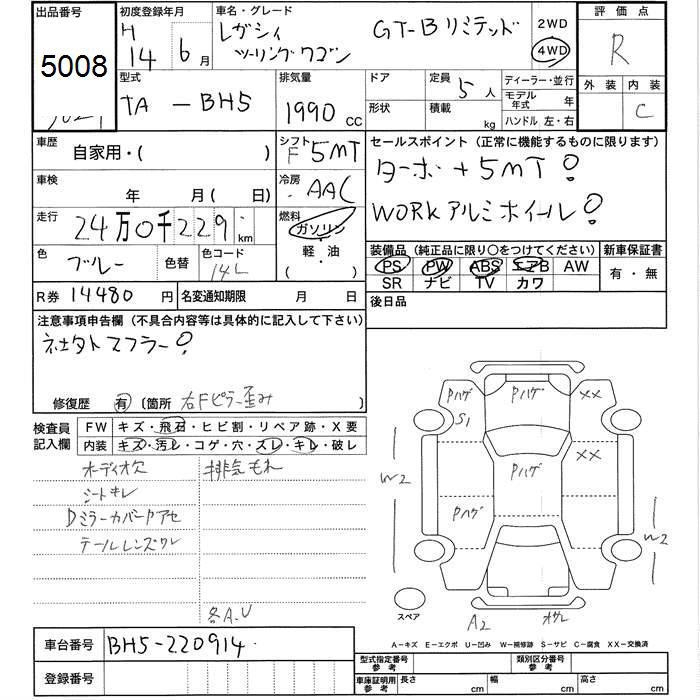 出品番号 初度登録年月 車名・グレード 評価点
5008
H 14 年 6 月
レガシィ ツーリングワゴン GT-Bリミテッド
2WD 4WD
R
型式 排気量 ドア 定員 ディーラー・並行 外装 内装
TA - BH5 1990 cc 5人 モデル年式 年 C
形状 積載 kg ハンドル 左・右
車歴 自家用・( ) シフト F 5MT
セールスポイント(正常に機能するものに限ります)
ターボ+5MT!
WORKアルミホイール!
車検 年 月( 日) 冷房 AAC
走行 24万0千229 km 燃料 ガソリン 軽・油 ( )
色 ブルー 色替 色コード 14L
装備品(純正品に限り○をつけてください) 新車保証書
PS PW ABS エアB AW 有・無
SR ナビ TV カワ
R券 14480 円 名変通知期限 月 日 後日品
注意事項申告欄(不具合内容等は具体的に記入して下さい)
社外マフラー!
修復歴 有 〔箇所 右Fピラー歪み
検査員記入欄 FW キズ・飛石・ヒビ割・リペア跡・X要
内装 キズ・汚レ・コゲ・穴・スレ・キレ・破レ
オーディオ欠 排気もれ
シートキレ
Dミラーカバー色アセ
テールレンズワレ
各A.U
Pハゲ S1 Pハゲ XX
W2 Pハゲ XX
Pハゲ W2
スペア A2
A-キズ E-エクボ U-凹み W-補修跡 S-サビ C-腐食 XX-交換済
車台番号 BH5-220914
登録番号
型式指定番号 参考 類別区分番号 参考
車庫証明用 参考 長さ cm 幅 cm 高さ cm